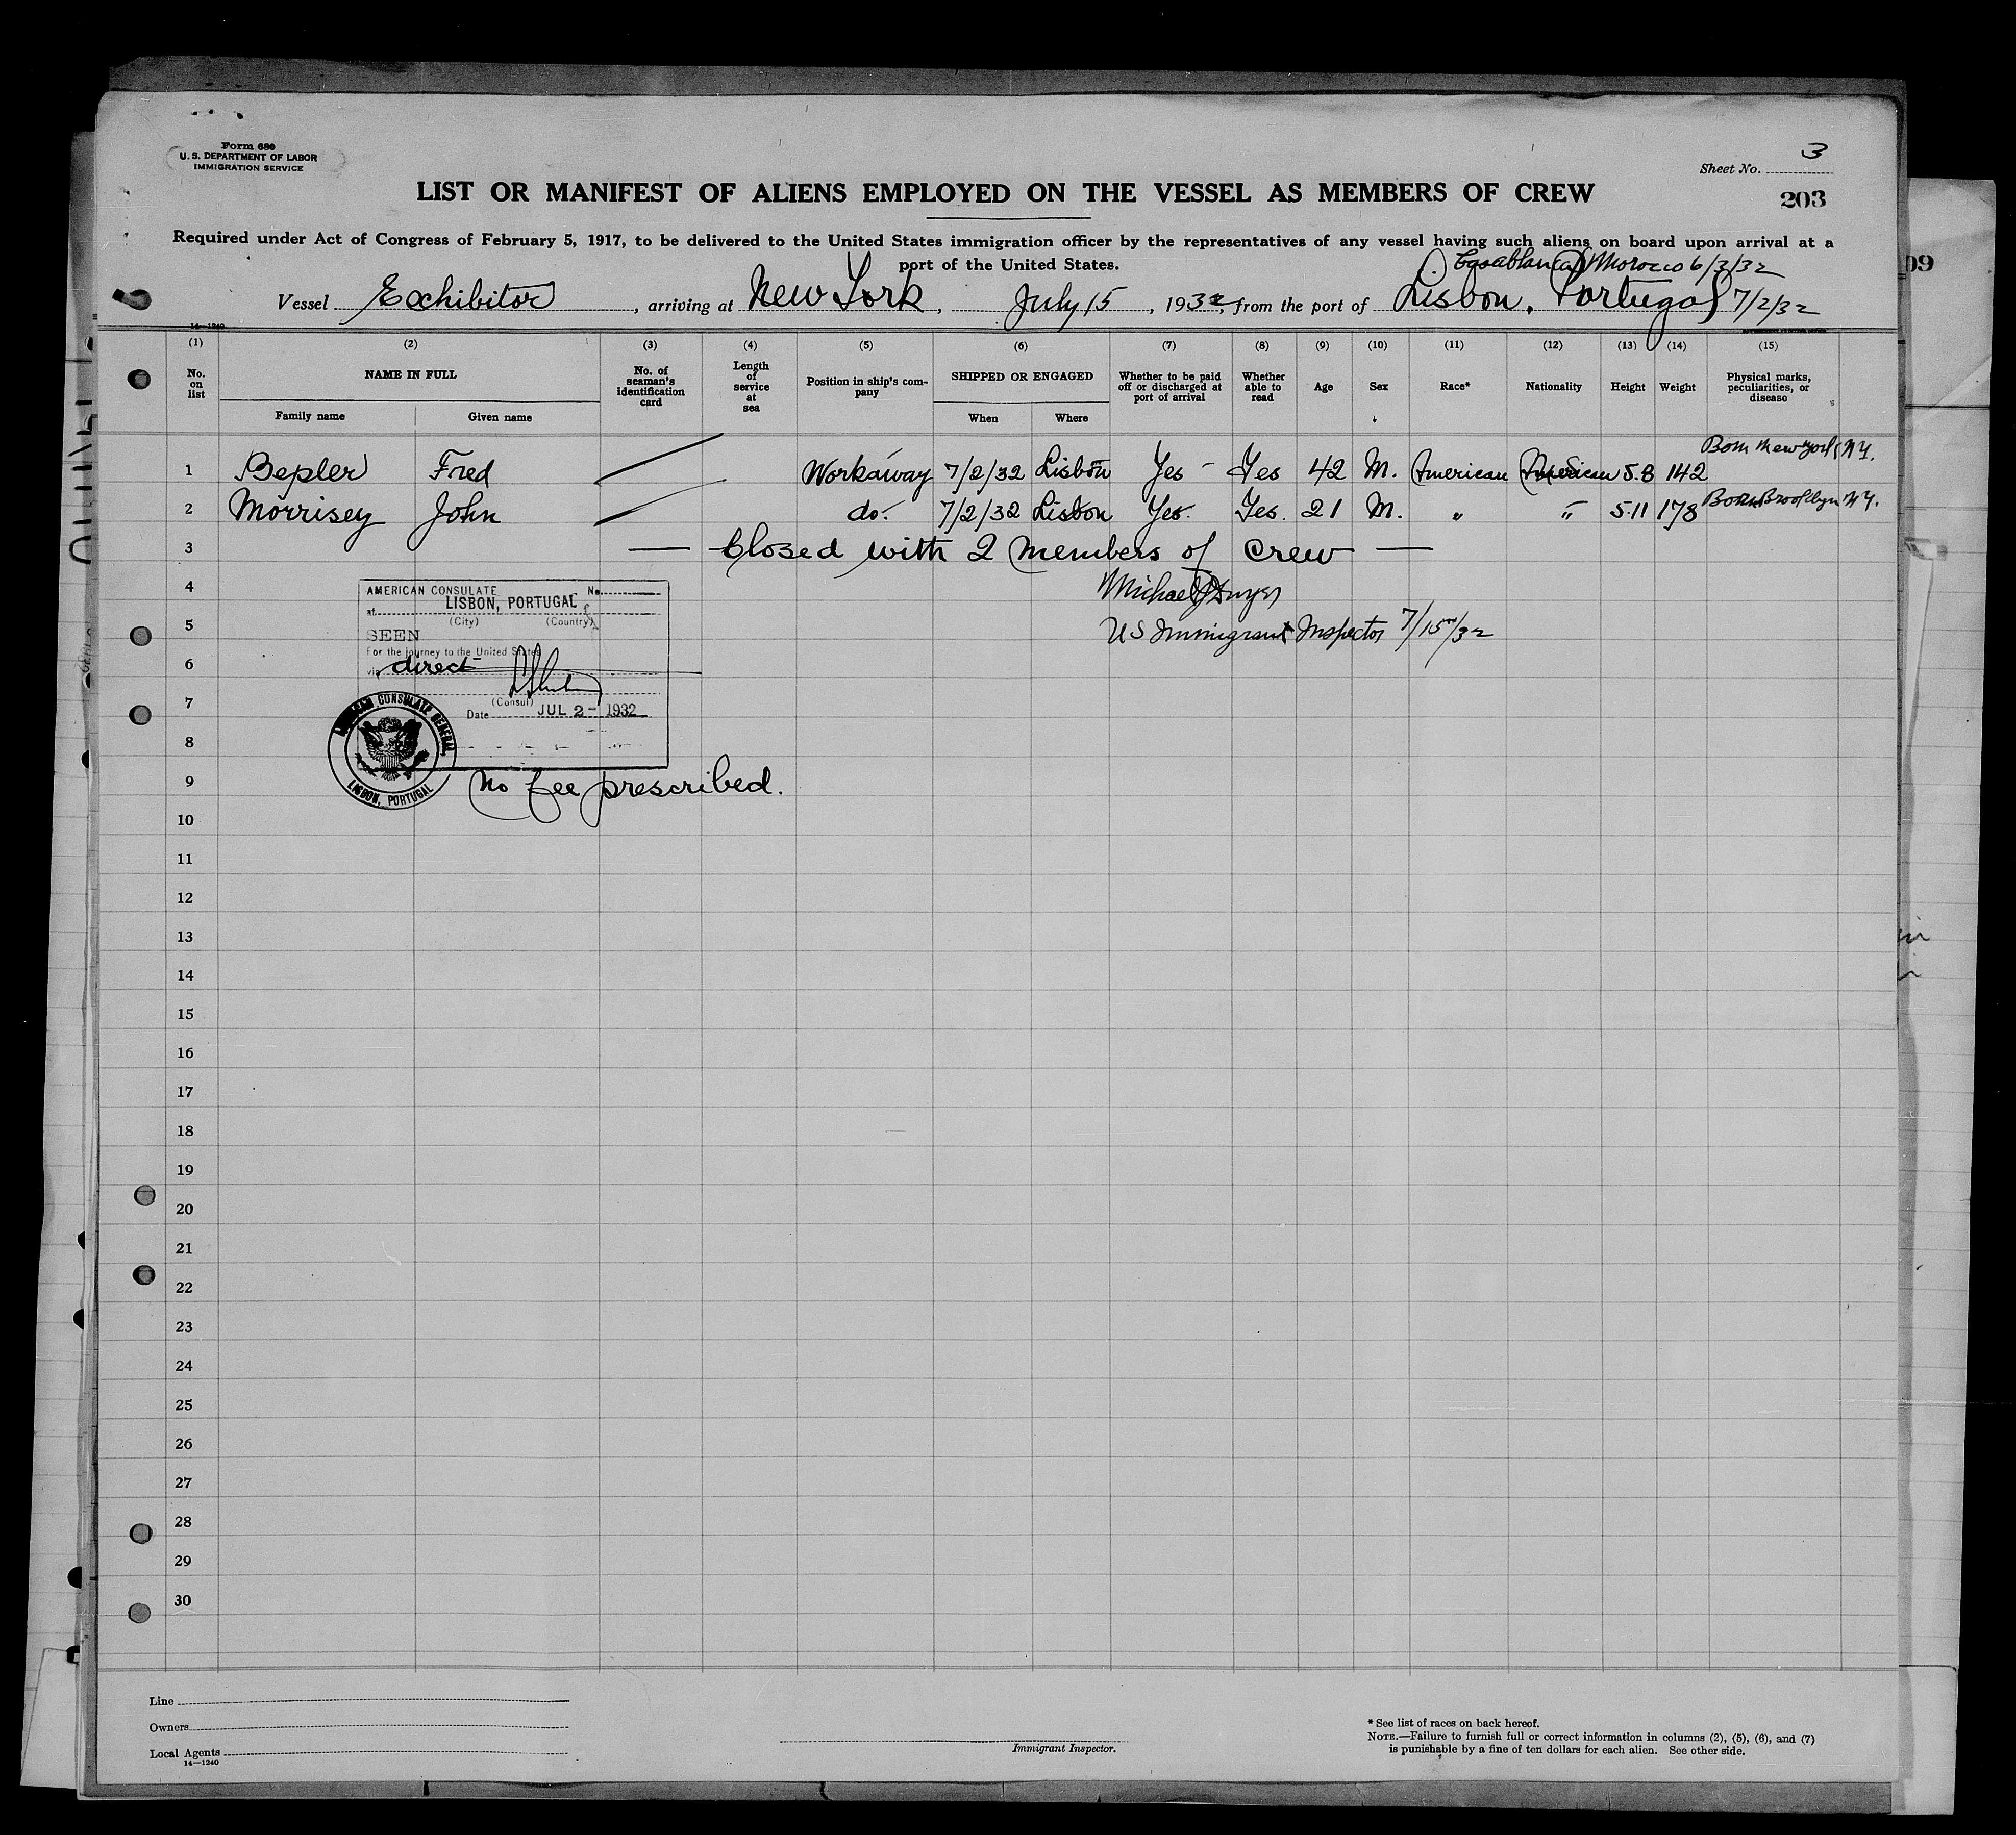 Form 680
U. S. DEPARTMENT OF LABOR
IMMIGRATION SERVICE
Sheet No. 3
LIST OR MANIFEST OF ALIENS EMPLOYED ON THE VESSEL AS MEMBERS OF CREW
203
Required under Act of Congress of February 5, 1917, to be delivered to the United States immigration officer by the representatives of any vessel having such aliens on board upon arrival at a
port of the United States.
Casablanca Morocco 6/3/32
Vessel Exhibitor, arriving at New York, July 15, 1932, from the port of Lisbon, Portugal 7/2/32
14—1240
(1) (2) (3) (4) (5) (6) (7) (8) (9) (10) (11) (12) (13) (14) (15)
No. on list NAME IN FULL Family name Given name No. of seaman's identification card Length of service at sea Position in ship's company SHIPPED OR ENGAGED When Where Whether to be paid off or discharged at port of arrival Whether able to read Age Sex Race* Nationality Height Weight Physical marks, peculiarities, or disease
1 Bepler Fred Workaway 7/2/32 Lisbon Yes - Yes 42 M. American American 5.8 142 Born New York N.Y.
2 Morrisey John do. 7/2/32 Lisbon Yes. Yes. 21 M. " " 5.11 178 Born Brooklyn N.Y.
3 — Closed with 2 members of crew —
4 Michael Dwyer
5 US Immigrant Inspector 7/15/32
AMERICAN CONSULATE No.
at LISBON, PORTUGAL
(City) (Country)
SEEN
For the journey to the United States
via direct
(Consul)
Date JUL 2 - 1932
AMERICAN CONSULATE GENERAL,
LISBON, PORTUGAL
No fee prescribed.
6
7
8
9
10
11
12
13
14
15
16
17
18
19
20
21
22
23
24
25
26
27
28
29
30
Line
Owners
Local Agents
14—1240
Immigrant Inspector.
* See list of races on back hereof.
NOTE.—Failure to furnish full or correct information in columns (2), (5), (6), and (7)
is punishable by a fine of ten dollars for each alien. See other side.